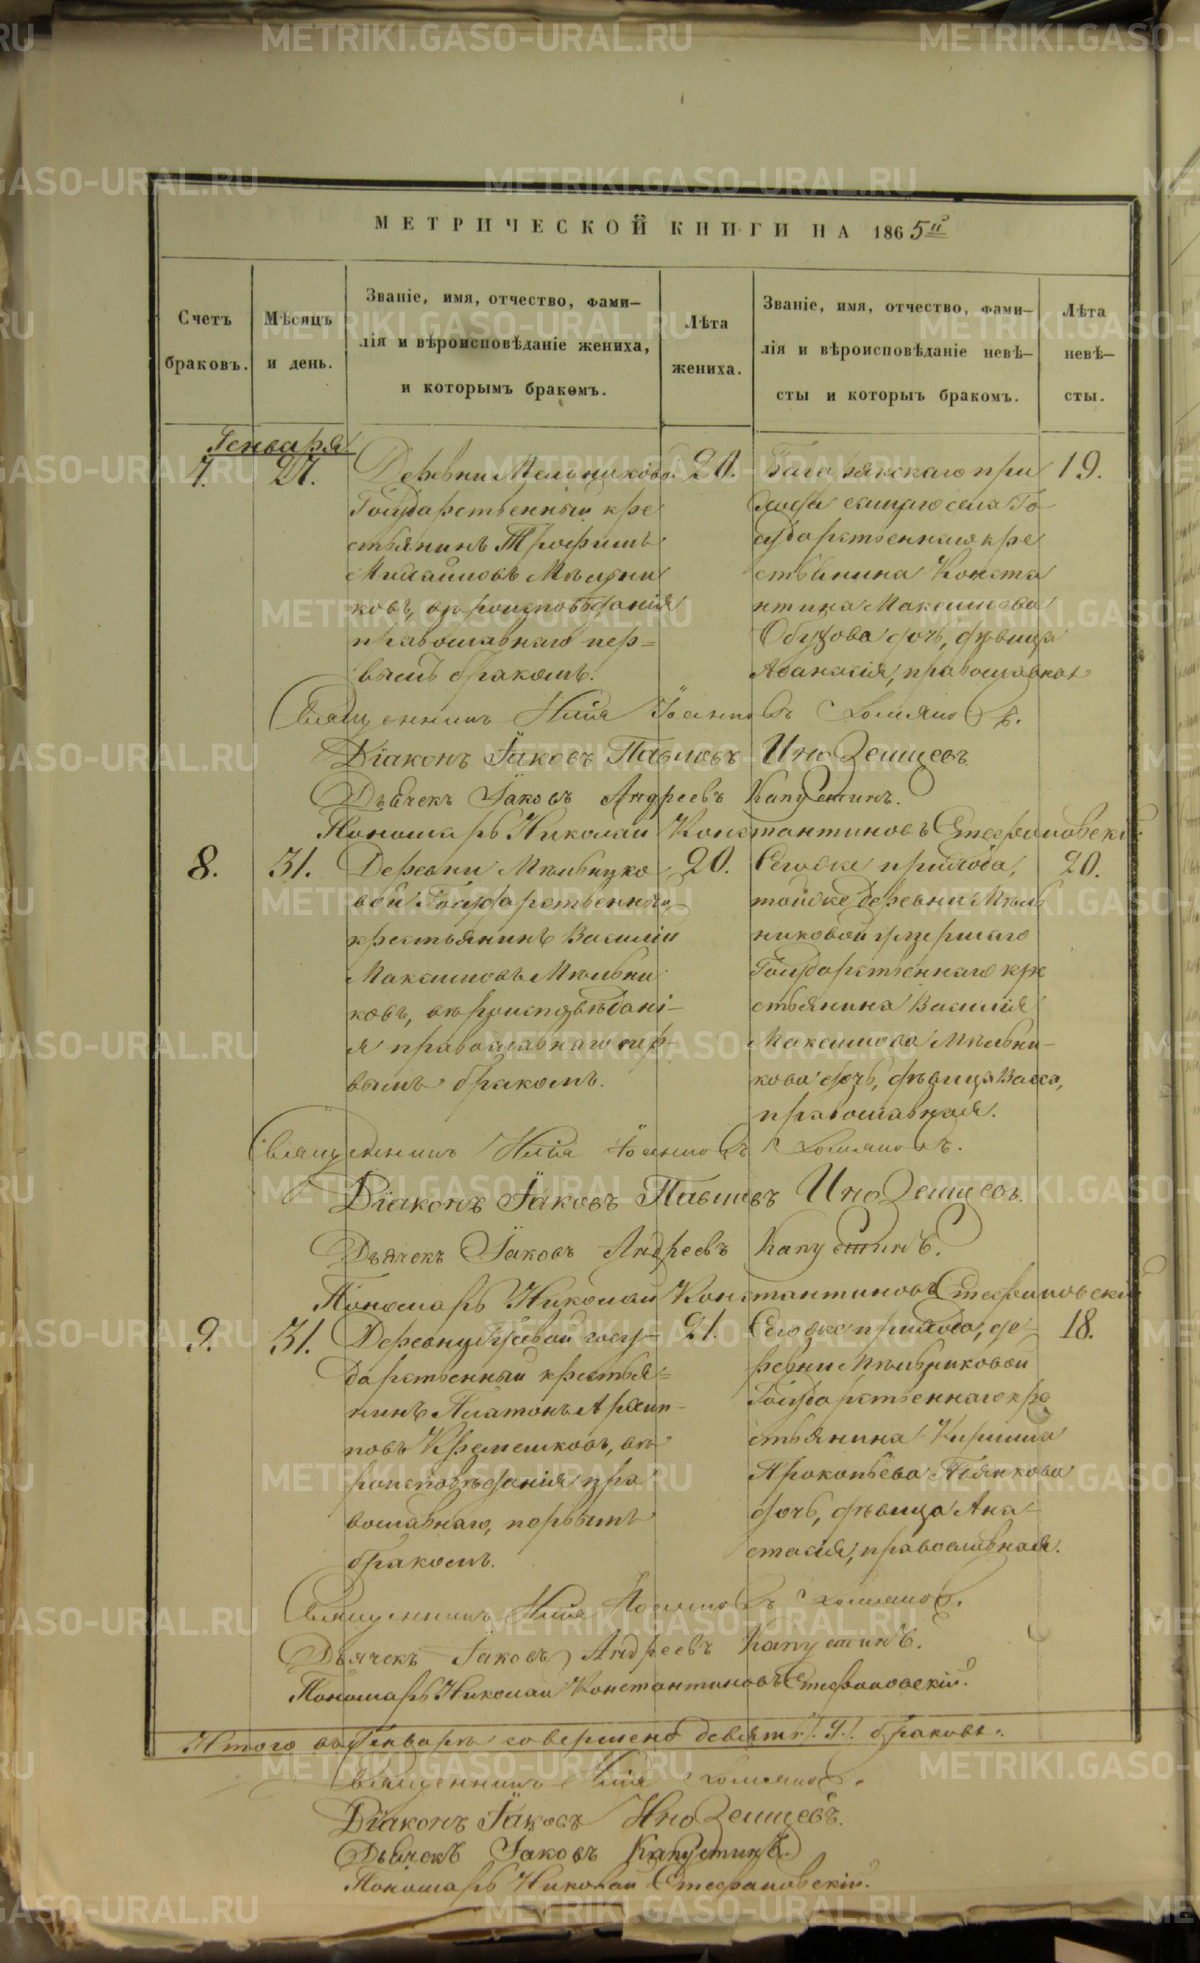 МЕТРИЧЕСКОЙ КНИГИ НА 1865й
Счетъ браковъ.
Мѣсяцъ и день.
Званіе, имя, отчество, фами-
лія и вѣроисповѣданіе жениха,
и которымъ бракомъ.
Лѣта жениха.
Званіе, имя, отчество, фами-
лія и вѣроисповѣданіе невѣ-
сты и которыъ бракомъ.
Лѣта невѣ-
сты.
Генваря
7.
27.
Деревни Мельниково
Государственный кре
стьянинъ Трофимъ
Михайловъ Мельни
ковъ, вѣроисповѣданія
православнаго пер=
вымъ бракомъ.
20.
Багарякскаго при
хода самаго села Го-
сударственнаго кре
стьянина Конста
нтина Максимова
Обухова дочь, дѣвица
Афанасія, православная
19.
Священникъ Илія Іоанновъ Холмяновъ.
Діаконъ Іаковъ Павловъ Иноземцевъ
Дьячекъ Іаковъ Андреевъ Капустинъ.
Пономарь Николай Константиновъ Стефановскій
8.
31.
Деревни Мельнико
вой Государственный
крестьянинъ Василій
Максимовъ Мельни
ковъ, вѣроисповѣдані-
я православнаго пер-
вымъ бракомъ.
20.
Сегоже прихода,
тойже деревни Мель
никовой умершаго
Государственнаго кре
стьянина Василія
Максимова Мельни-
кова дочь, дѣвица Васса,
православная.
20.
Священникъ Илія Іоанновъ Холмяновъ.
Діаконъ Іаковъ Павловъ Иноземцевъ.
Дьячекъ Іаковъ Андреевъ Капустинъ.
Пономарь Николай Константиновъ Стефановскій
9.
31.
Деревни государ
дарственный крестья=
нинъ Платонъ Архип-
повъ вѣ
роисповѣданія пра
вославнаго, первымъ
бракомъ.
21.
Сегоже прихода, де-
ревни Мельниковой
Государственнаго кре
стьянина Кирилла
Прокопьева
дочь, дѣвица Ана-
стасія, православная.
18.
Священникъ Илія Іоанновъ Холмяновъ.
Дьячекъ Іаковъ Андреевъ Капустинъ.
Пономарь Николай Константиновъ Стефановскій.
Итого въ Генварѣ совершено девять /.9./. браковъ.
Священникъ Илія Холмяновъ.
Діаконъ Іаковъ Иноземцевъ.
Дьячекъ Іаковъ Капустинъ.
Пономарь Николай Стефановскій.
METRIKI.GASO-URAL.RU